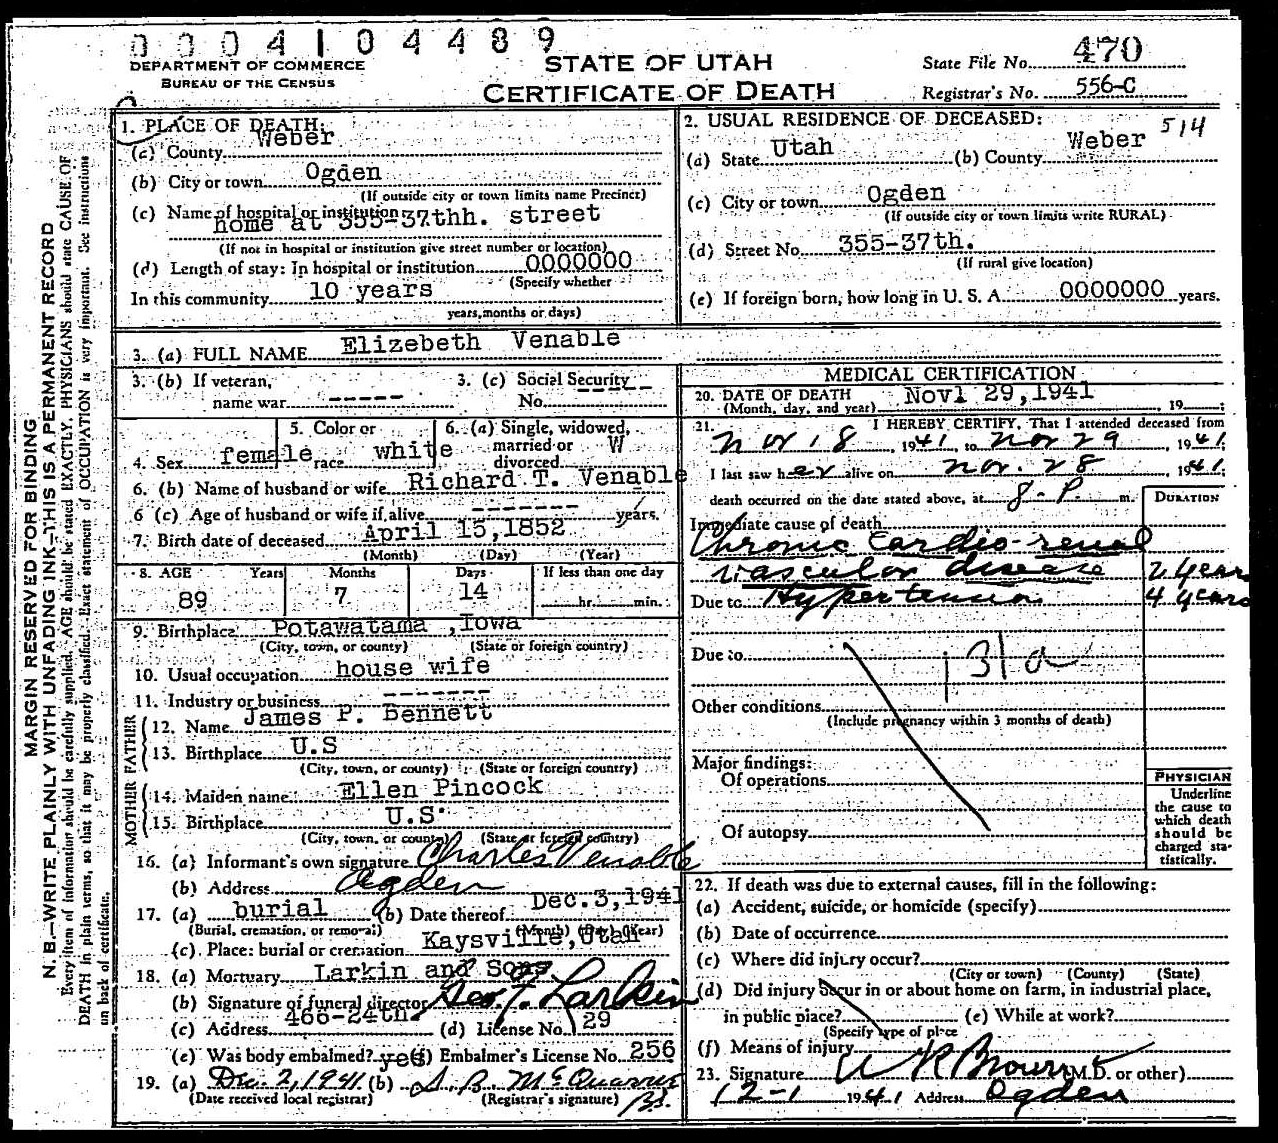 0004104489
DEPARTMENT OF COMMERCE
BUREAU OF THE CENSUS
STATE OF UTAH
CERTIFICATE OF DEATH
State File No. 470
Registrar's No. 556-C
MARGIN RESERVED FOR BINDING
N. B.—WRITE PLAINLY WITH UNFADING INK—THIS IS A PERMANENT RECORD
Every item of information should be carefully supplied. AGE should be stated EXACTLY. PHYSICIANS should state CAUSE OF
DEATH in plain terms, so that it may be properly classified. Exact statement of OCCUPATION is very important. See instructions
on back of certificate.
1. PLACE OF DEATH:
(a) County Weber
(b) City or town Ogden
(If outside city or town limits name Precinct)
(c) Name of hospital or institution
home at 355-37thh. street
(If not in hospital or institution give street number or location)
(d) Length of stay: In hospital or institution 0000000
(Specify whether
In this community 10 years
years, months or days)
2. USUAL RESIDENCE OF DECEASED: 514
(a) State Utah (b) County Weber
(c) City or town Ogden
(If outside city or town limits write RURAL)
(d) Street No. 355-37th.
(If rural give location)
(e) If foreign born, how long in U. S. A. 0000000 years.
3. (a) FULL NAME Elizebeth Venable
3. (b) If veteran,
name war -----
3. (c) Social Security
No. ----
4. Sex female
5. Color or
race white
6. (a) Single, widowed,
married or
divorced W
6. (b) Name of husband or wife Richard T. Venable
6 (c) Age of husband or wife if alive ------- years.
7. Birth date of deceased April 15,1852
(Month) (Day) (Year)
8. AGE Years Months Days If less than one day
89 7 14 hr. min.
9. Birthplace Potawatama ,Iowa
(City, town, or county) (State or foreign country)
10. Usual occupation house wife
11. Industry or business -------
FATHER
12. Name James P. Bennett
13. Birthplace U.S
(City, town, or county) (State or foreign country)
MOTHER
14. Maiden name Ellen Pincock
15. Birthplace U.S.
(City, town, or county) (State or foreign country)
16. (a) Informant's own signature Charles Venable
(b) Address Ogden
17. (a) burial (b) Date thereof Dec.3,1941
(Burial, cremation, or removal) (Month) (Day) (Year)
(c). Place: burial or cremation Kaysville,Utah
18. (a) Mortuary Larkin and Sons
(b) Signature of funeral director Geo. F. Larkin
(c) Address 466-24th. (d) License No. 29
(e) Was body embalmed? yes (f) Embalmer's License No. 256
19. (a) Dec. 2, 1941 (b)
(Date received local registrar) (Registrar's signature)
MEDICAL CERTIFICATION
20. DATE OF DEATH Novl 29,1941
(Month, day, and year) , 19 ;
21. I HEREBY CERTIFY, That I attended deceased from
Nov 18 1941 to Nov 29 , 1941;
I last saw her alive on Nov. 28 , 1941;
death occurred on the date stated above, at 8-P. m.
DURATION
Immediate cause of death
Chronic Cardio-renal
vascular disease 2 years
Due to Hypertension 4 years
Due to 131a
Other conditions
(Include pregnancy within 3 months of death)
Major findings:
Of operations
Of autopsy
PHYSICIAN
Underline
the cause to
which death
should be
charged sta-
tistically.
22. If death was due to external causes, fill in the following:
(a) Accident, suicide, or homicide (specify)
(b) Date of occurrence
(c) Where did injury occur?
(City or town) (County) (State)
(d) Did injury occur in or about home on farm, in industrial place,
in public place? (e) While at work?
(Specify type of place
(f) Means of injury
23. Signature W R Brown (M.D. or other)
12-1 1941 Address Ogden